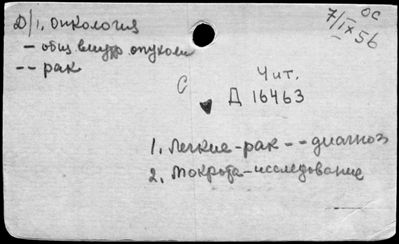 Д/1, онкология
ОС
7/IX 56
– общ внутр опухоли
-- рак
С
Чит.
Д 16463
1. Легкие-рак--диагноз
2. Мокрота-исследование